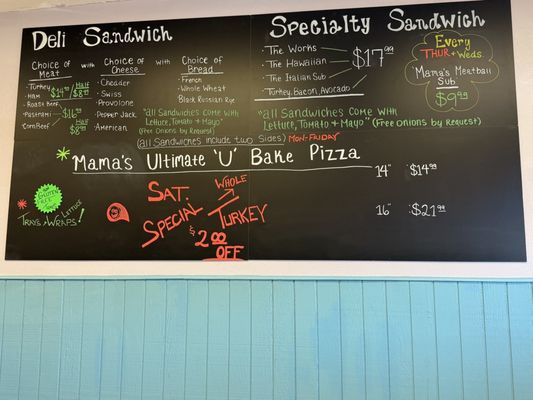 Deli Sandwich
Choice of Meat with Choice of Cheese with Choice of Bread
· Turkey
· Ham
· Roast Beef
· Pastrami
· Corn Beef
$14.99
Half $8.99
$16.99
Half $8.99
· Cheddar
· Swiss
· Provolone
· Pepper Jack
· American
· French
· Whole Wheat
Black Russian Rye
"all Sandwiches come with
Lettuce, Tomato + Mayo"
(Free Onions by Request)
Specialty Sandwich
· The Works
· The Hawaiian
· The Italian Sub
· Turkey, Bacon, Avocado
$17.99
"all Sandwiches come with
Lettuce, Tomato + Mayo" (Free Onions by Request)
Every
Thur + Weds.
Mama's Meatball
Sub
$9.99
(all Sandwiches include two Sides) Mon-Friday
Mama's Ultimate 'U' Bake Pizza
14" $14.99
16" $21.99
Trays & Wraps!
Lettuce
Sat.
Special
Whole
Turkey
$2.00
OFF